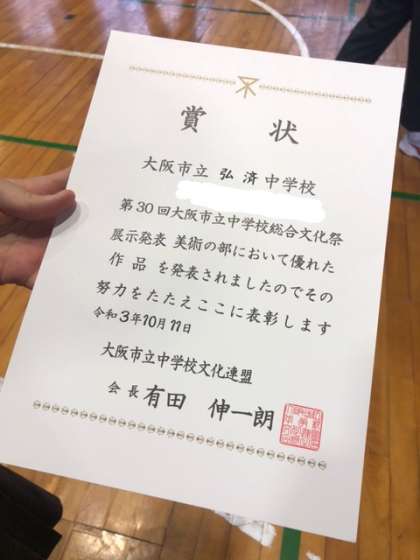 賞状
大阪市立 弘済中学校
第30回大阪市立中学校総合文化祭
展示発表 美術の部において優れた
作品 を発表されましたのでその
努力をたたえここに表彰します
令和3年10月11日
大阪市立中学校文化連盟
会長 有田 伸一朗